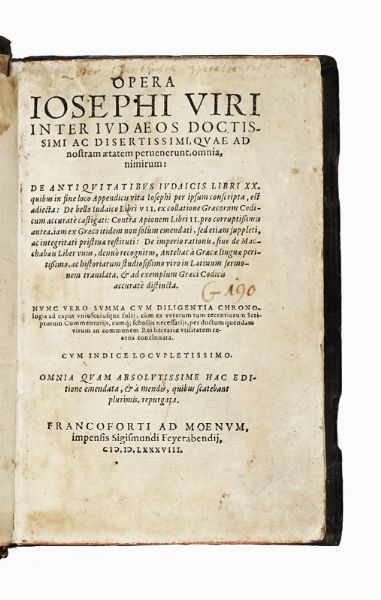 OPERA
IOSEPHI VIRI
INTER IVDAEOS DOCTIS-
SIMI AC DISERTISSIMI, QVAE AD
nostram ætatem peruenerunt, omnia,
nimirum:
DE ANTIQVITATIBVS IVDAICIS LIBRI XX.
quibus in fine loco Appendicis vita Iosephi per ipsum conscripta, est
adiecta: De bello Iudaico Libri VII. ex collatione Græcorum Codi-
cum accuratè castigati: Contra Apionem Libri II. pro corruptissimis
antea, iam ex Græco itidem non solùm emendati, sed etiam suppleti,
ac integritati pristinæ restituti: De imperio rationis, siue de Mac-
chabæis Liber vnus, denuò recognitus, Antehac à Græcæ linguæ peri-
tissimo, ac historiarum studiosissimo viro in Latinum sermo-
nem translata, & ad exemplum Græci Codicis
accuratè distincta.
G-190
NVNC VERO SVMMA CVM DILIGENTIA CHRONO-
logia ad caput vniuscuiusque folij, cùm ex veterum tum recentiorum Scri-
ptorum Commentarijs, cumq; scholijs necessarijs, per doctum quendam
virum in communem Rei literariæ vtilitatem re-
cens concinnata.
CVM INDICE LOCVPLETISSIMO.
OMNIA QVAM ABSOLVTISSIME HAC EDI-
tione emendata, & à mendis, quibus scatebant
plurimis, repurgata.
FRANCOFORTI AD MOENVM,
impensis Sigismundi Feyerabendij,
CIↃ. IↃ. LXXXVIII.